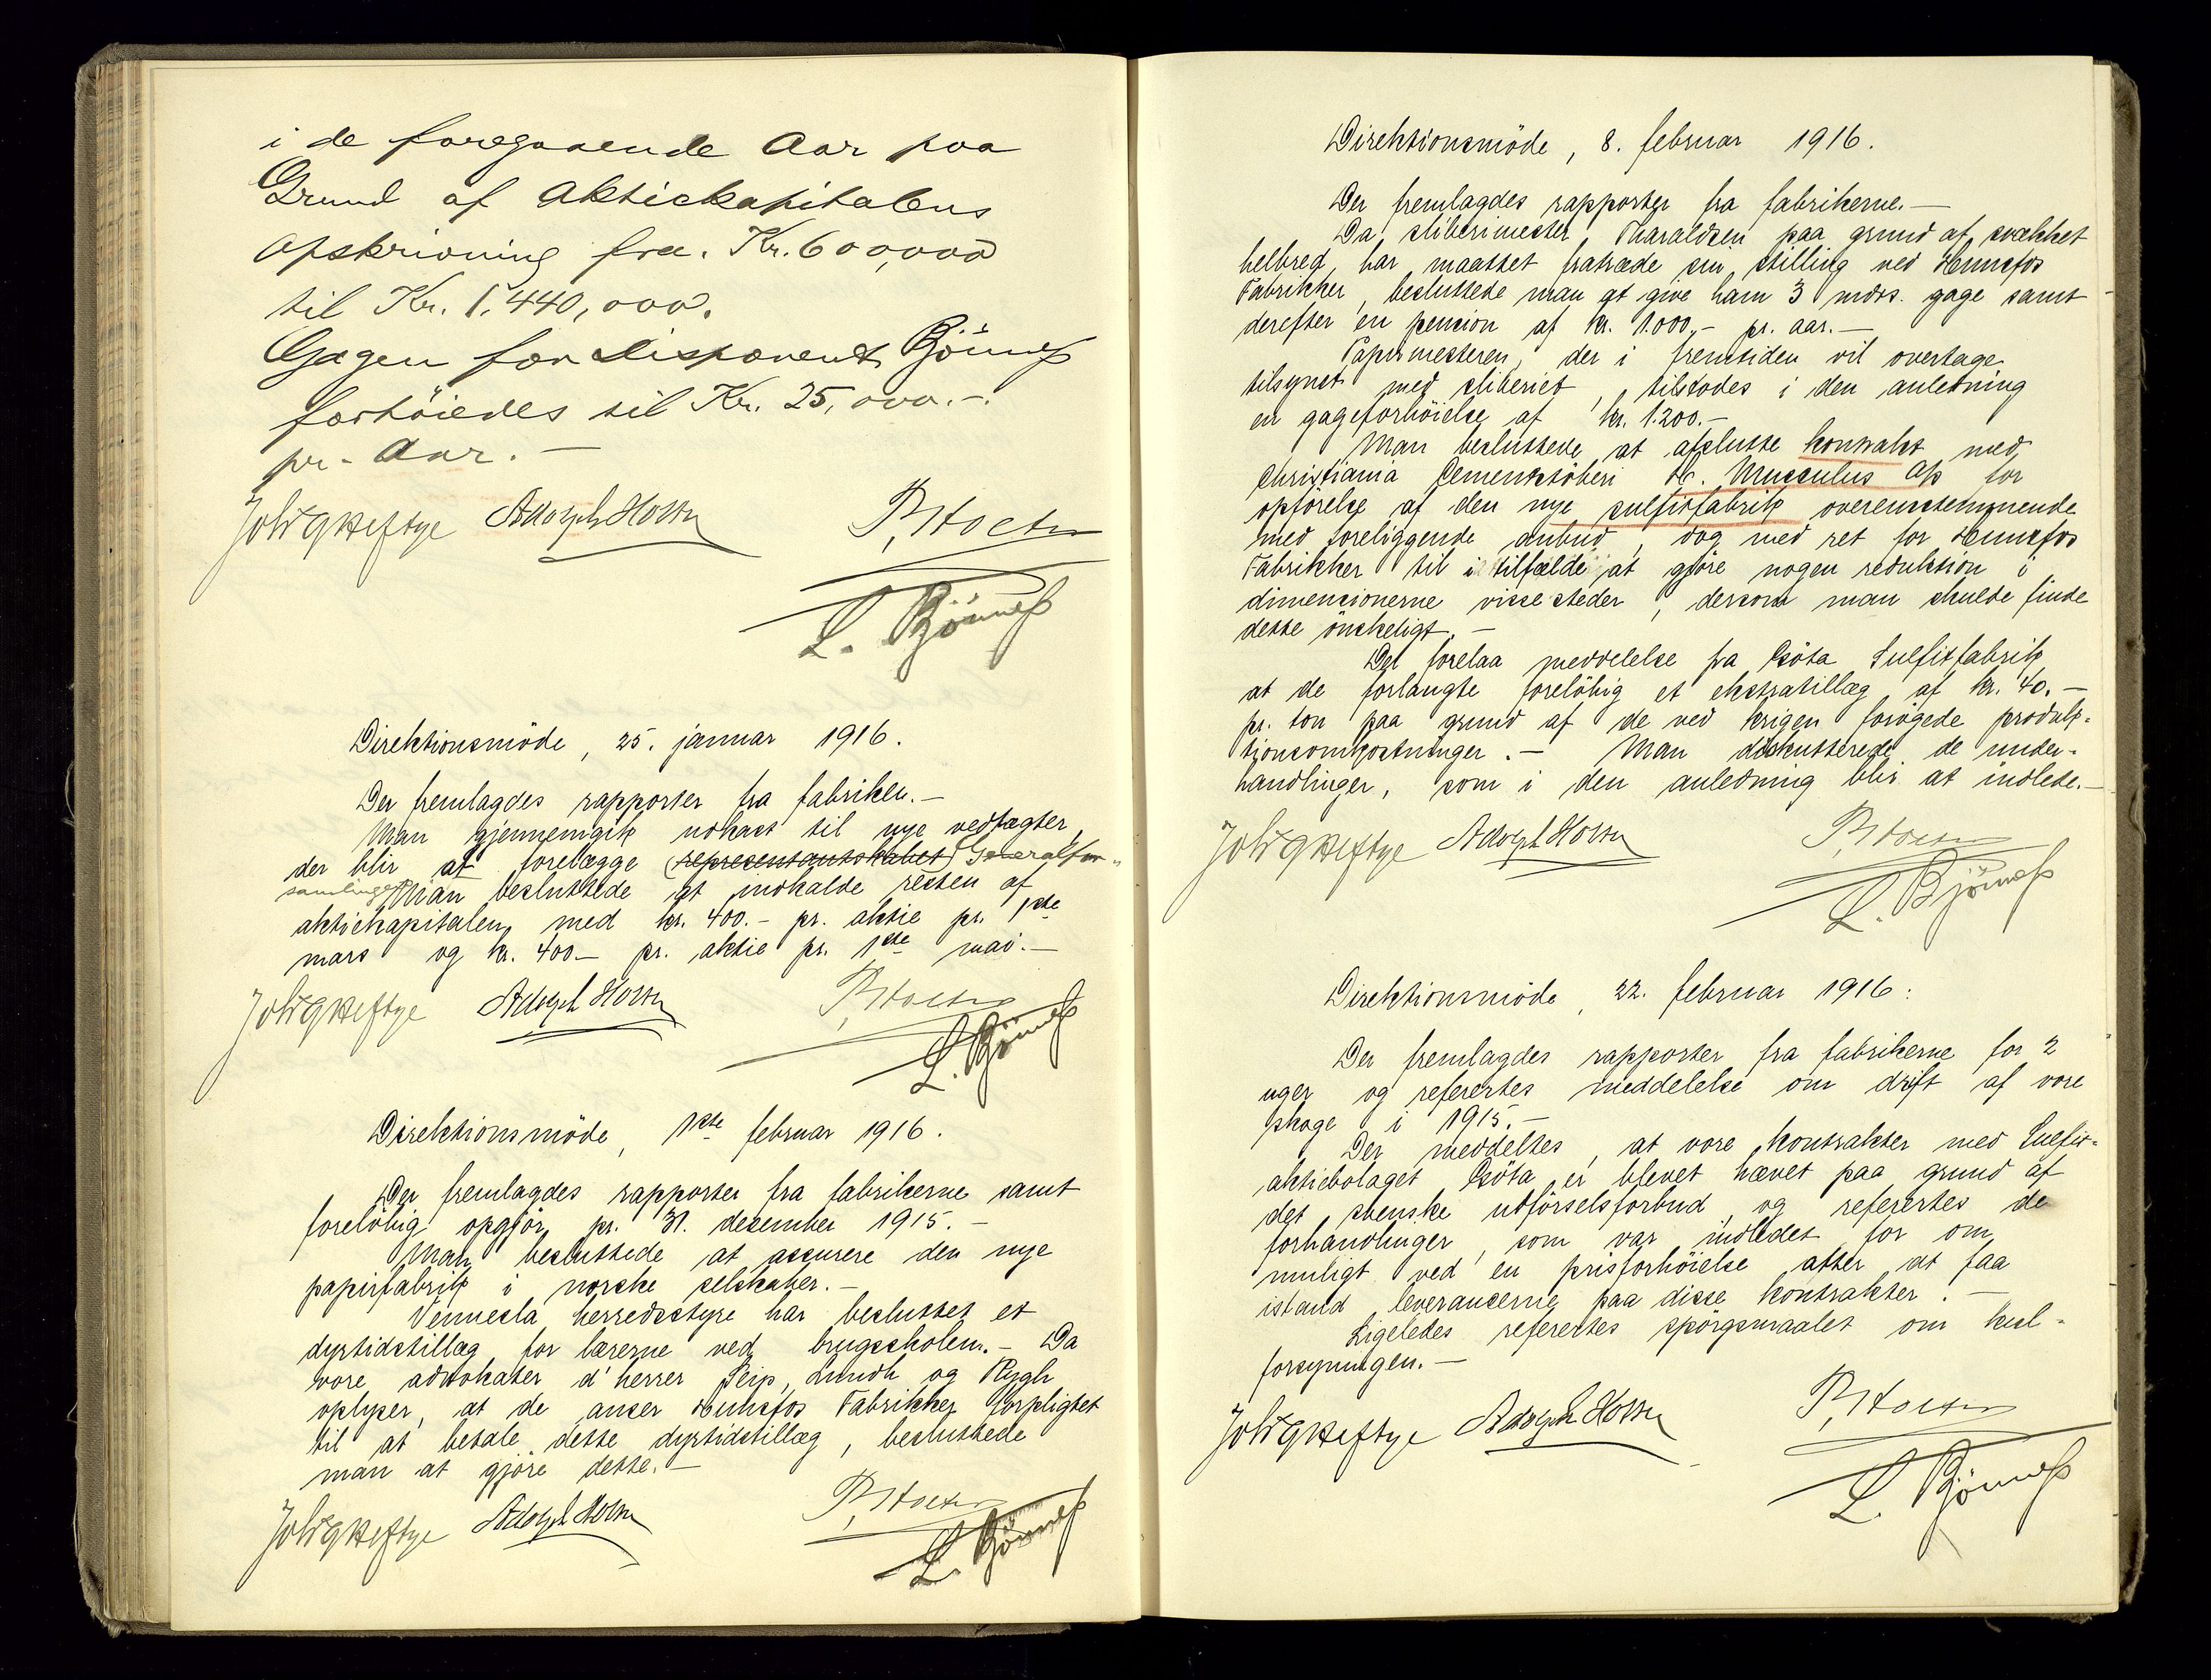 i de foregaaende Aar paa
Grund af Aktiekapitalens
Opskrivning fra. Kr. 600,000
til Kr. 1,440,000.
Gagen for Disponent Björness
forhöiedes til Kr. 25,000.-.
pr. Aar. —
Joh GHeftye Adolph Holm P, Holm
L. Björness
Direktionsmöde, 25. januar 1916.
Der fremlagdes rapporter fra fabriken.—
Man gjennemgik udkast til nye vedtægter,
der blir at forelægge (representantskabet) Generalfor-
samlingen Man besluttede at indkalde resten af
aktiekapitalen med kr. 400.- pr. aktie pr. 1ste
mars og kr. 400— pr. aktie pr. 1ste mai.—
Joh GHeftye Adolph Holm P, Holm
L. Björness
Direktionsmöde, 1ste februar 1916.
Der fremlagdes rapporter fra fabrikerne samt
forelöbig opgjör pr. 31. desember 1915. —
Man besluttede at assurere den nye
papirfabrik i norske selskaber.—
Vennesla herredsstyre har besluttet et
dyrtidstillæg for lærerne ved brugsskolen.— Da
vore advokater d'herrer Seip, Lundh og Rygh
oplyser, at de anser Hunsfos Fabrikker forpligtet
til at betale dette dyrtidstillæg, besluttede
man at gjöre dette.—
Joh GHeftye Adolph Holm P, Holm
L. Björness
Direktionsmöde, 8. februar 1916.
Der fremlagdes rapporter fra fabrikerne.—
Da sliberimester Tharaldsen paa grund af svækket
helbred har maattet fratræde sin stilling ved Hunsfos
Fabrikker, besluttede man at give ham 3 mdrs. gage samt
derefter en pension af kr. 1.000,- pr. aar.—
Papirmesteren, der i fremtiden vil overtage
tilsynet med sliberiet, tilstodes i den anledning
en gageforhöielse af kr. 1.200.-
Man besluttede at afslutte kontrakt med
Christiania Cementstöberi H. Musculus A/s for
opförelse af den nye sulfitfabrik overensstemmende
med foreliggende anbud, dog med ret for Hunsfos
Fabrikker til i tilfælde at gjöre nogen reduktion i
dimensionerne visse steder, dersom man skulde finde
dette önskeligt.—
Det forelaa meddelelse fra Göta Sulfitfabrik
at de forlangte forelöbig et ekstratillæg af kr. 40.—
pr. ton paa grund af de ved krigen forögede produk-
tionsomkostninger.— Man diskutterede de under-
handlinger, som i den anledning blir at indlede.—
Joh GHeftye Adolph Holm P, Holm
L. Björness
Direktionsmöde, 22. februar 1916:
Der fremlagdes rapporter fra fabrikerne for 2
uger og referertes meddelelse om drift af vore
skoge i 1915.—
Der meddeltes, at vore kontrakter med Sulfit-
aktiebolaget Göta er blevet hævet paa grund af
det svenske udförselsforbud og referertes de
forhandlinger, som var indledet for om
muligt ved en prisforhöielse atter at faa
istand leveranserne paa disse kontrakter.—
Ligeledes referertes spörgsmaalet om kul-
forsyningen.—
Joh GHeftye Adolph Holm P, Holm
L. Björness